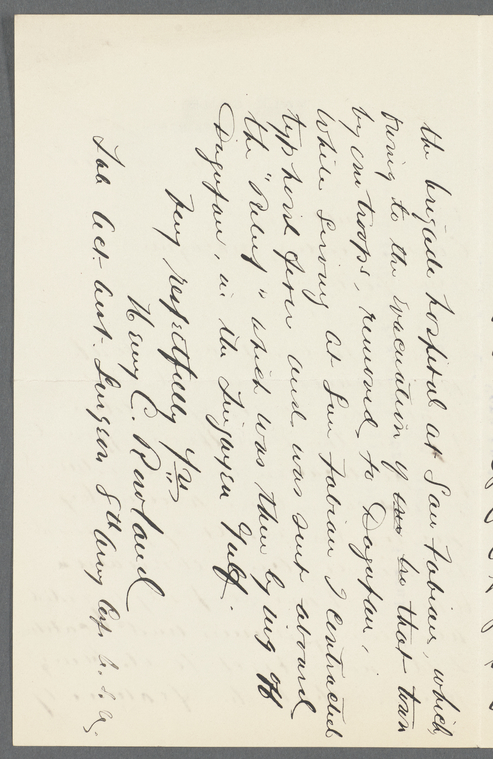 the brigade hospital at San Fabian, which,
owing to the evacuation of in that town
by our troops, removed to Dagupan.
While serving at San Fabian I contracted
typhoid fever and was sent aboard
the "Relief" which was then lying off
Dagupan, in the Lingayen Gulf.
Very respectfully Yrs
Henry C. Rowland
Late Act. Asst. Surgeon 8th Army Corps. U. S. A.